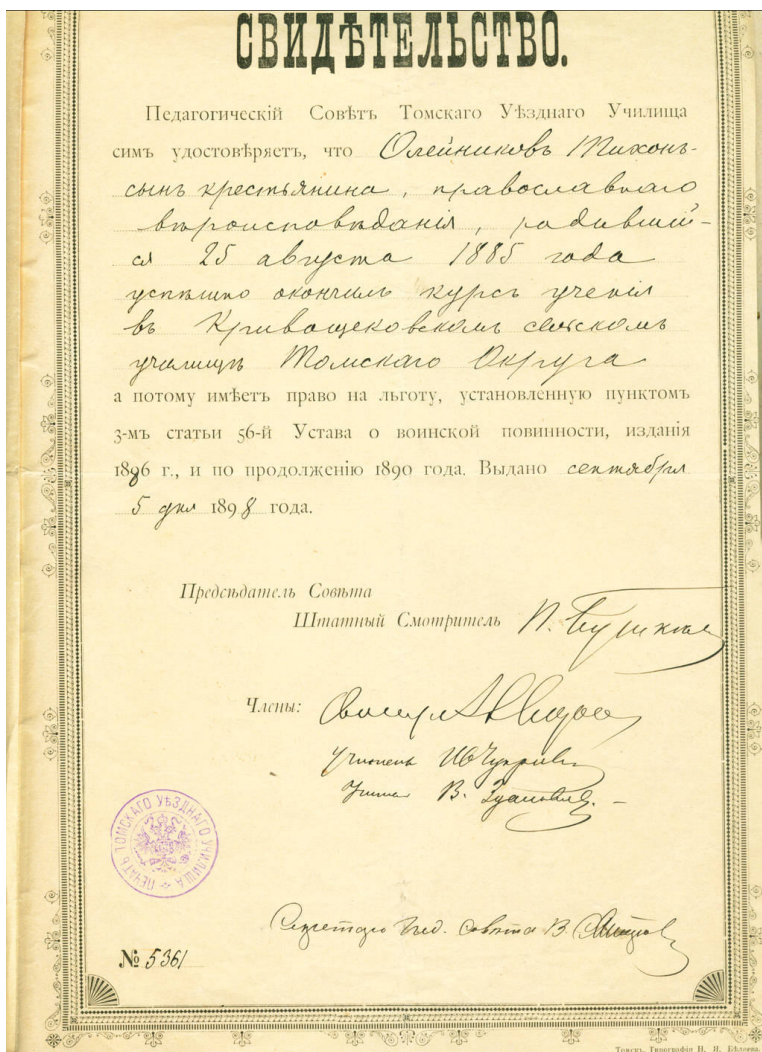 СВИДѢТЕЛЬСТВО.
Педагогическій Совѣтъ Томскаго Уѣзднаго Училища
симъ удостовѣряетъ, что Олейниковъ Тихонъ-
сынъ крестьянина, православнаго
вѣроисповѣданія, родивший-
ся 25 августа 1885 года
успѣшно окончилъ курсъ ученія
въ Кривощековскомъ сельскомъ
училищѣ Томскаго Округа
а потому имѣетъ право на льготу, установленную пунктомъ
3-мъ статьи 56-й Устава о воинской повинности, изданія
1886 г., и по продолженію 1890 года. Выдано сентября
5 дня 1898 года.
Предсѣдатель Совѣта
Штатный Смотритель П.
Члены:
Учитель
В.
ПЕЧАТЬ ТОМСКАГО УѢЗДНАГО УЧИЛИЩА
Секретарь Пед. совѣта В.
№ 5361
Томскъ, Типографія Н. И. Бѣляева.